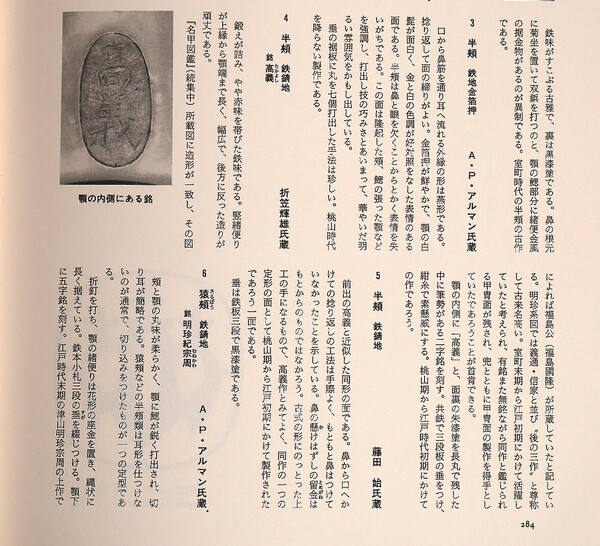 鉄味がすこぶる古雅で、裏は黒漆塗である。鼻の根元
に菊坐を置いて双鋲を打つのと、顎の鰓部分に緒便金風
の据金物があるのが異制である。室町時代の半頬の古作
である。
3 半頬 鉄地金箔押 A・P・アルマン氏蔵
口から鼻筋を通り耳へ流れる外縁の形は燕形である。
捻り返して面の締りがよい。金箔押が鮮やかで、顎の白
髭が面白く、金と白の色調が好対照をなした表情のある
面である。半頬は鼻と眼を欠くことからとかく表情を失
いがちである。この面は隆起した頬、鰓の張った顎など
を強調し、打出し技の巧みさとあいまって、華やいだ明
るい雰囲気をかもし出している。
垂の裾板に丸を七個打出した手法は珍しい。桃山時代
を降らない製作である。
4 半頬 鉄錆地
銘 高義 折笠輝雄氏蔵
鍛えが詰み、やや赤味を帯びた鉄味である。竪緒便り
が上縁から顎端まで長く、幅広で、後方に反った造りが
頑丈である。
『名甲図鑑』(続集中)所載図に造形が一致し、その図
顎の内側にある銘
によれば福島公(福島國隆)が所蔵していたと記してい
る。明珍系図では義通・信家と並び〝後の三作〟と尊称
して古来名高い。室町末期から江戸初期にかけて活躍し
ていたと考えられ、有銘また無銘ながら同作と鑑じられ
る甲冑面が残され、兜とともに甲冑面の製作を得手とし
ていたであろうことが首肯できる。
顎の内側に「高義」と、面裏の朱漆塗を長丸で残した
中に筆勢がある二字銘を刻す。共鉄で三段板の垂をつけ、
紺糸で素懸威にする。桃山期から江戸時代初期にかけて
の作であろう。
5 半頬 鉄錆地 藤田 始氏蔵
前出の高義と近似した同形の面である。鼻から口へか
けての捻り返しの工法は手際よく、もともと鼻はつけて
いなかったことを示している。鼻の懸けはずしの留金は
もとからのものではなかろう。古式の形にのっとった上
工の手になるもので、高義作とみてよく、同作の一つの
定形の面として桃山期から江戸初期にかけて製作された
であろう一面である。
垂は鉄板三段で黒漆塗である。
6 猿頬 鉄錆地
銘 明珍紀宗周 A・P・アルマン氏蔵
頬と顎の丸味が柔らかく、顎に鰓が鋭く打出され、切
り耳が簡略である。猿頬などの半頬類は耳形を仕つけな
いのが通常で、切り込みをつけたものが一つの定型であ
る。
折釘を打ち、顎の緒便りは花形の座金を置き、縄状に
長く据えている。鉄本小札三段の垂を綴じつける。顎下
に五字銘を刻す。江戸時代末期の津山明珍宗周の上作で
284